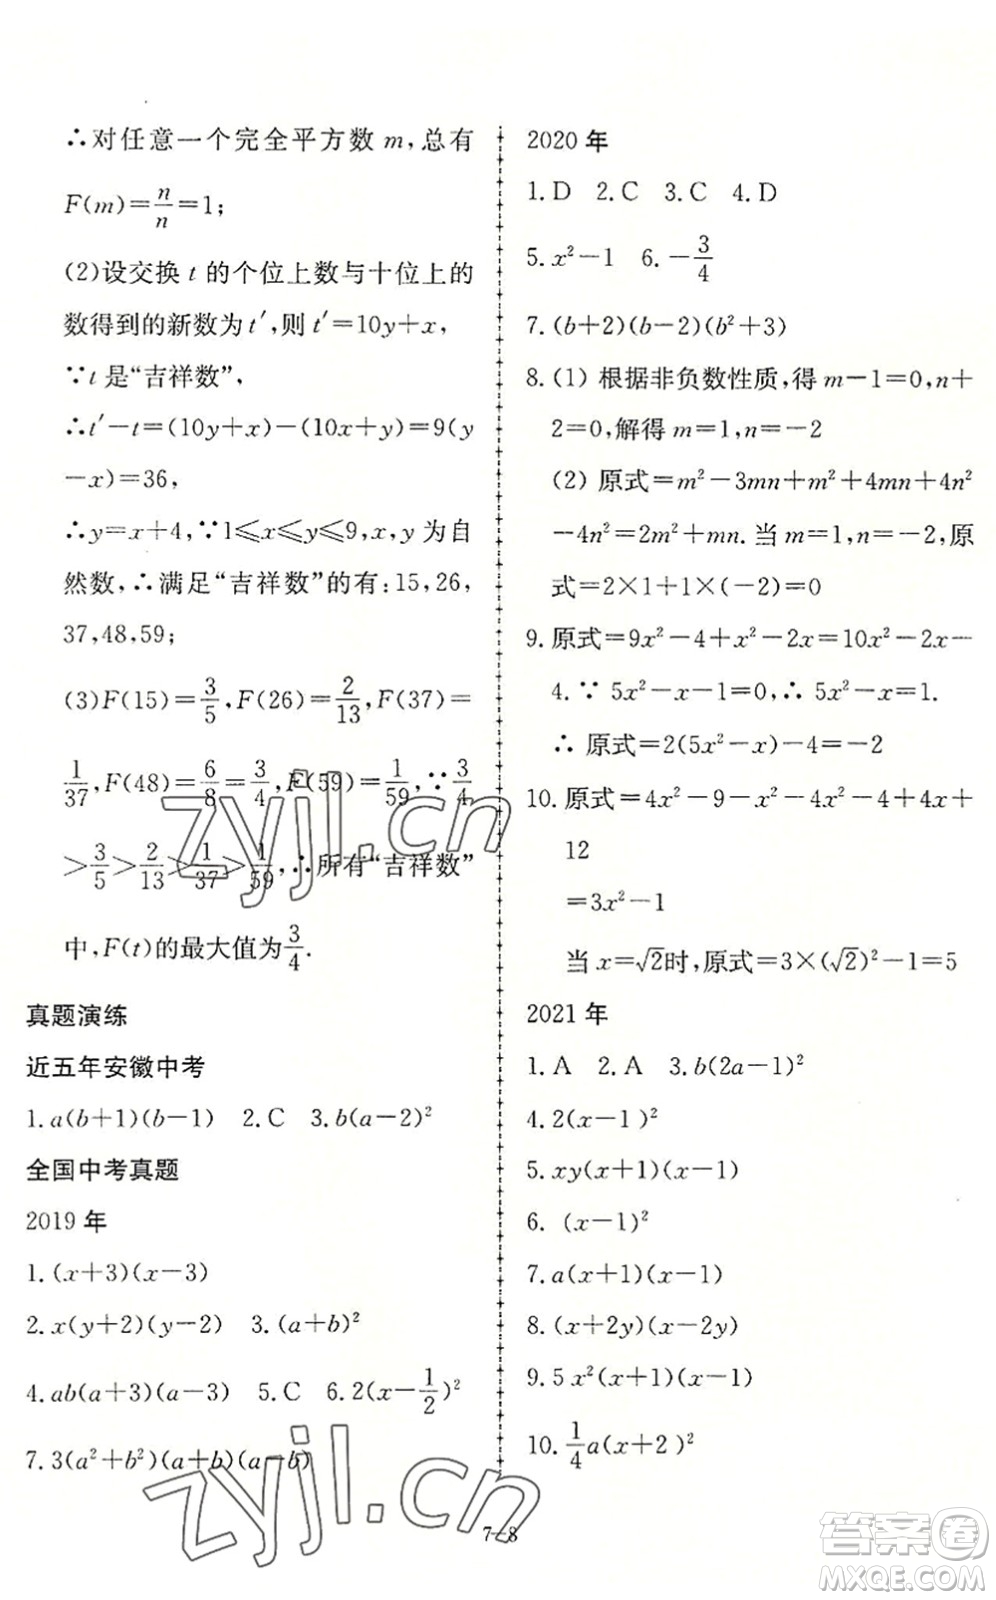 ∴对任意一个完全平方数 m,总有
F(m)=n/n=1;
(2)设交换 t 的个位上数与十位上的
数得到的新数为 t′,则 t′=10y+x,
∵t 是“吉祥数”,
∴t′-t=(10y+x)-(10x+y)=9(y
-x)=36,
∴y=x+4,∵1⩽x⩽y⩽9,x,y 为自
然数,∴满足“吉祥数”的有:15,26,
37,48,59;
(3)F(15)=3/5,F(26)=2/13,F(37)=
1/37,F(48)=6/8=3/4,F(59)=1/59,∵3/4
>3/5>2/13>1/37>1/59,∴所有“吉祥数”
中,F(t)的最大值为3/4.
真题演练
近五年安徽中考
1.a(b+1)(b-1) 2.C 3.b(a-2)²
全国中考真题
2019 年
1.(x+3)(x-3)
2.x(y+2)(y-2) 3.(a+b)²
4.ab(a+3)(a-3) 5.C 6.2(x-1/2)²
7.3(a²+b²)(a+b)(a-b)
2020 年
1.D 2.C 3.C 4.D
5.x²-1 6.-3/4
7.(b+2)(b-2)(b²+3)
8.(1) 根据非负数性质,得 m-1=0,n+
2=0,解得 m=1,n=-2
(2) 原式=m²-3mn+m²+4mn+4n²
-4n²=2m²+mn.当 m=1,n=-2,原
式=2×1+1×(-2)=0
9.原式=9x²-4+x²-2x=10x²-2x-
4.∵ 5x²-x-1=0,∴ 5x²-x=1.
∴ 原式=2(5x²-x)-4=-2
10.原式=4x²-9-x²-4x²-4+4x+
12
=3x²-1
当 x=√2时,原式=3×(√2)²-1=5
2021 年
1.A 2.A 3.b(2a-1)²
4.2(x-1)²
5.xy(x+1)(x-1)
6. (x-1)²
7.a(x+1)(x-1)
8.(x+2y)(x-2y)
9.5x²(x+1)(x-1)
10.1/4a(x+2)²
7-8
zyjl.cn
zyjl.cn
答案圈
MXQE.COM